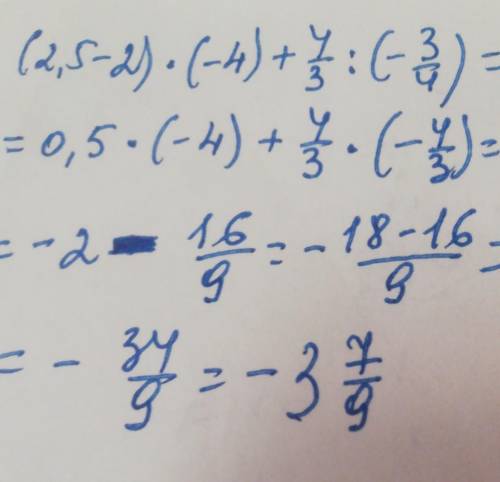 (2,5-2)·(-4)+4/3:(-3/4)=
=0,5·(-4)+4/3·(-4/3)=
=-2-16/9=-18-16/9=
=-34/9=-3 7/9